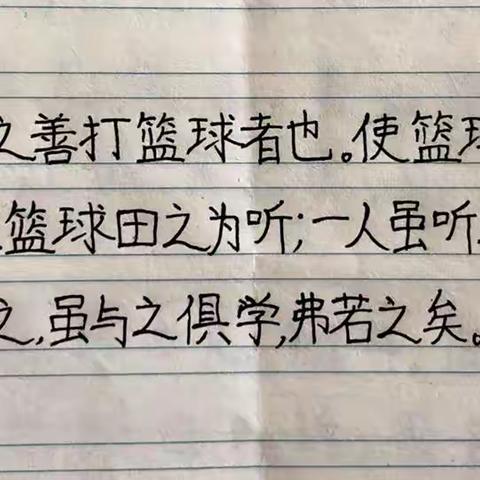 之善打篮球者也。使篮球
篮球田之为听;一人虽听
之,虽与之俱学,弗若之矣。